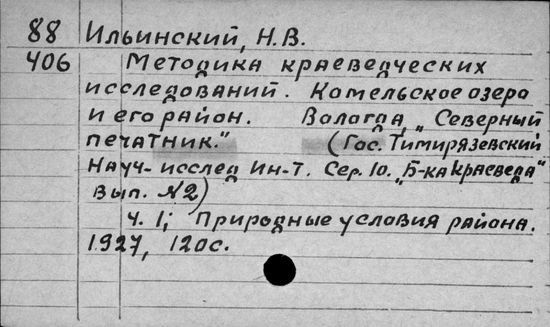 88 Ильинский, Н.В.
406 Методика краеведческих
исследований. Комельское озеро
и его район. Вологда, „Северный
печатник." (Гос. Тимирязевский
Науч-исслед Ин-т. Сер. 10. „Б-ка краеведа"
Вып. №2)
Ч. 1; Природные условия района.
1927, 120с.